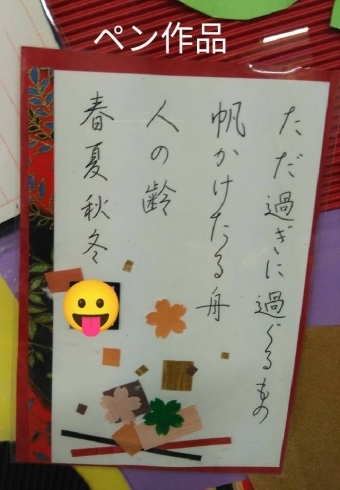 ペン作品
ただ過ぎに過ぐるもの
帆かけたる舟
人の齢
春夏秋冬